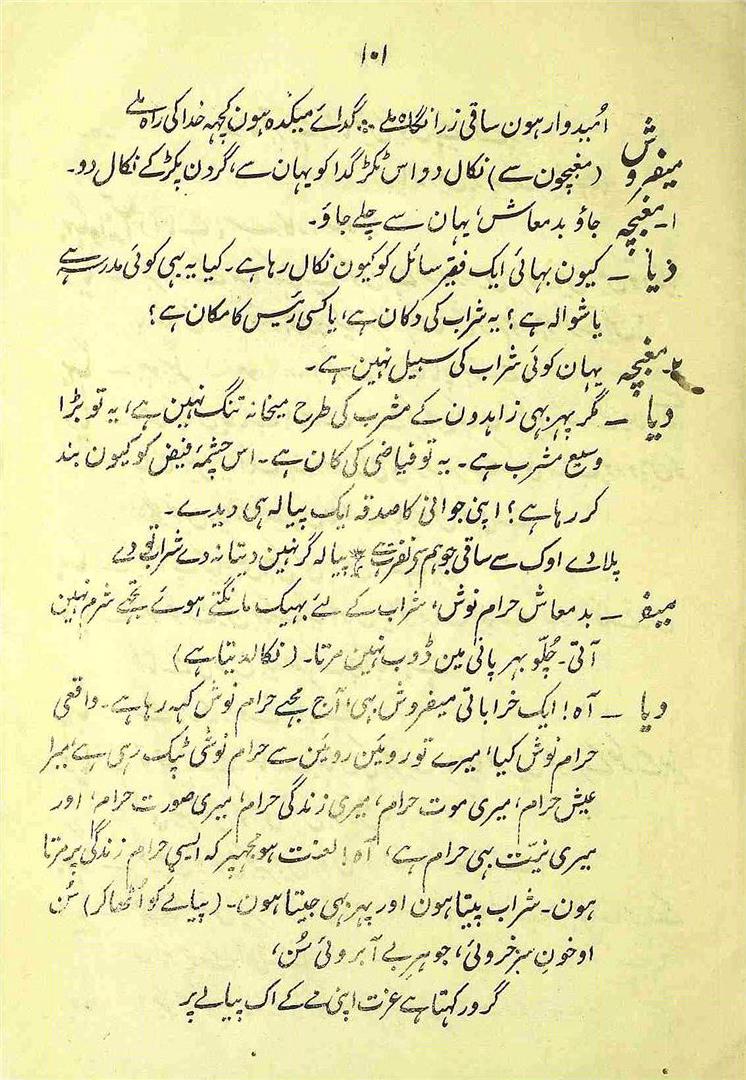 ۱۰۱
اُمیدوار ہون ساقی زرا نگاہ ملے ؞ گدائے میکدہ ہون کچہہ خدا کی راہ ملے
میفروش (مغبچون سے) نکال دو اس ٹکڑ گدا کو یہان سے، گردن پکڑ کے نکال دو۔
۱۔ مغبچہ جاؤ بدمعاش، یہان سے چلے جاؤ۔
دیا ـ کیون بہائی ایک فقیر سائل کو کیون نکال رہا ہے۔ کیا یہ بہی کوئی مدرسہ ہے
یا شوالہ ہے؟ یہ شراب کی دکان ہے، یا کسی رئیس کا مکان ہے؟
۲۔ مغبچہ یہان کوئی شراب کی سبیل نہین ہے۔
دیا ـ مگر پہر بہی زاہدون کے مشرب کی طرح میخانہ تنگ نہین ہے، یہ تو بڑا
وسیع مشرب ہے۔ یہ تو فیاضی کی کان ہے۔ اس چشمۂ فیض کو کیون بند
کر رہا ہے؟ اپنی جوانی کا صدقہ ایک پیالہ ہی دیدے۔
پلا دے اوک سے ساقی جو ہم سے نفرت ہے ؞ پیالہ گر نہین دیتا نہ دے شراب تو دے
میفـ ـ بدمعاش حرام نوش، شراب کے لئے بہیک مانگتے ہوئے تجہے شرم نہین
آتی۔ چُلّو بہر پانی مین ڈوب نہین مرتا۔ (نکالدیتا ہے)
دیا ـ آہ! ایک خراباتی میفروش بہی، آج مجہے حرام نوش کہہ رہا ہے۔ واقعی
حرام نوش کیا، میرے تو روئین روئین سے حرام نوشی ٹپک رہی ہے، میرا
عیش حرام، میری موت حرام، میری زندگی حرام، میری صورت حرام، اور
میری نیّت بہی حرام ہے، آہ! لعنت ہو مجہپر کہ ایسی حرام زندگی پر مرتا
ہون۔ شراب پیتا ہون اور پہر بہی جیتا ہون۔ (پیالے کو اُٹھا کر) سُن
او خونِ سرخروئی، جوہرِ بے آبروئی سُن،
گرور کہتا ہے عزت اپنی مے کے اک پیالے پر